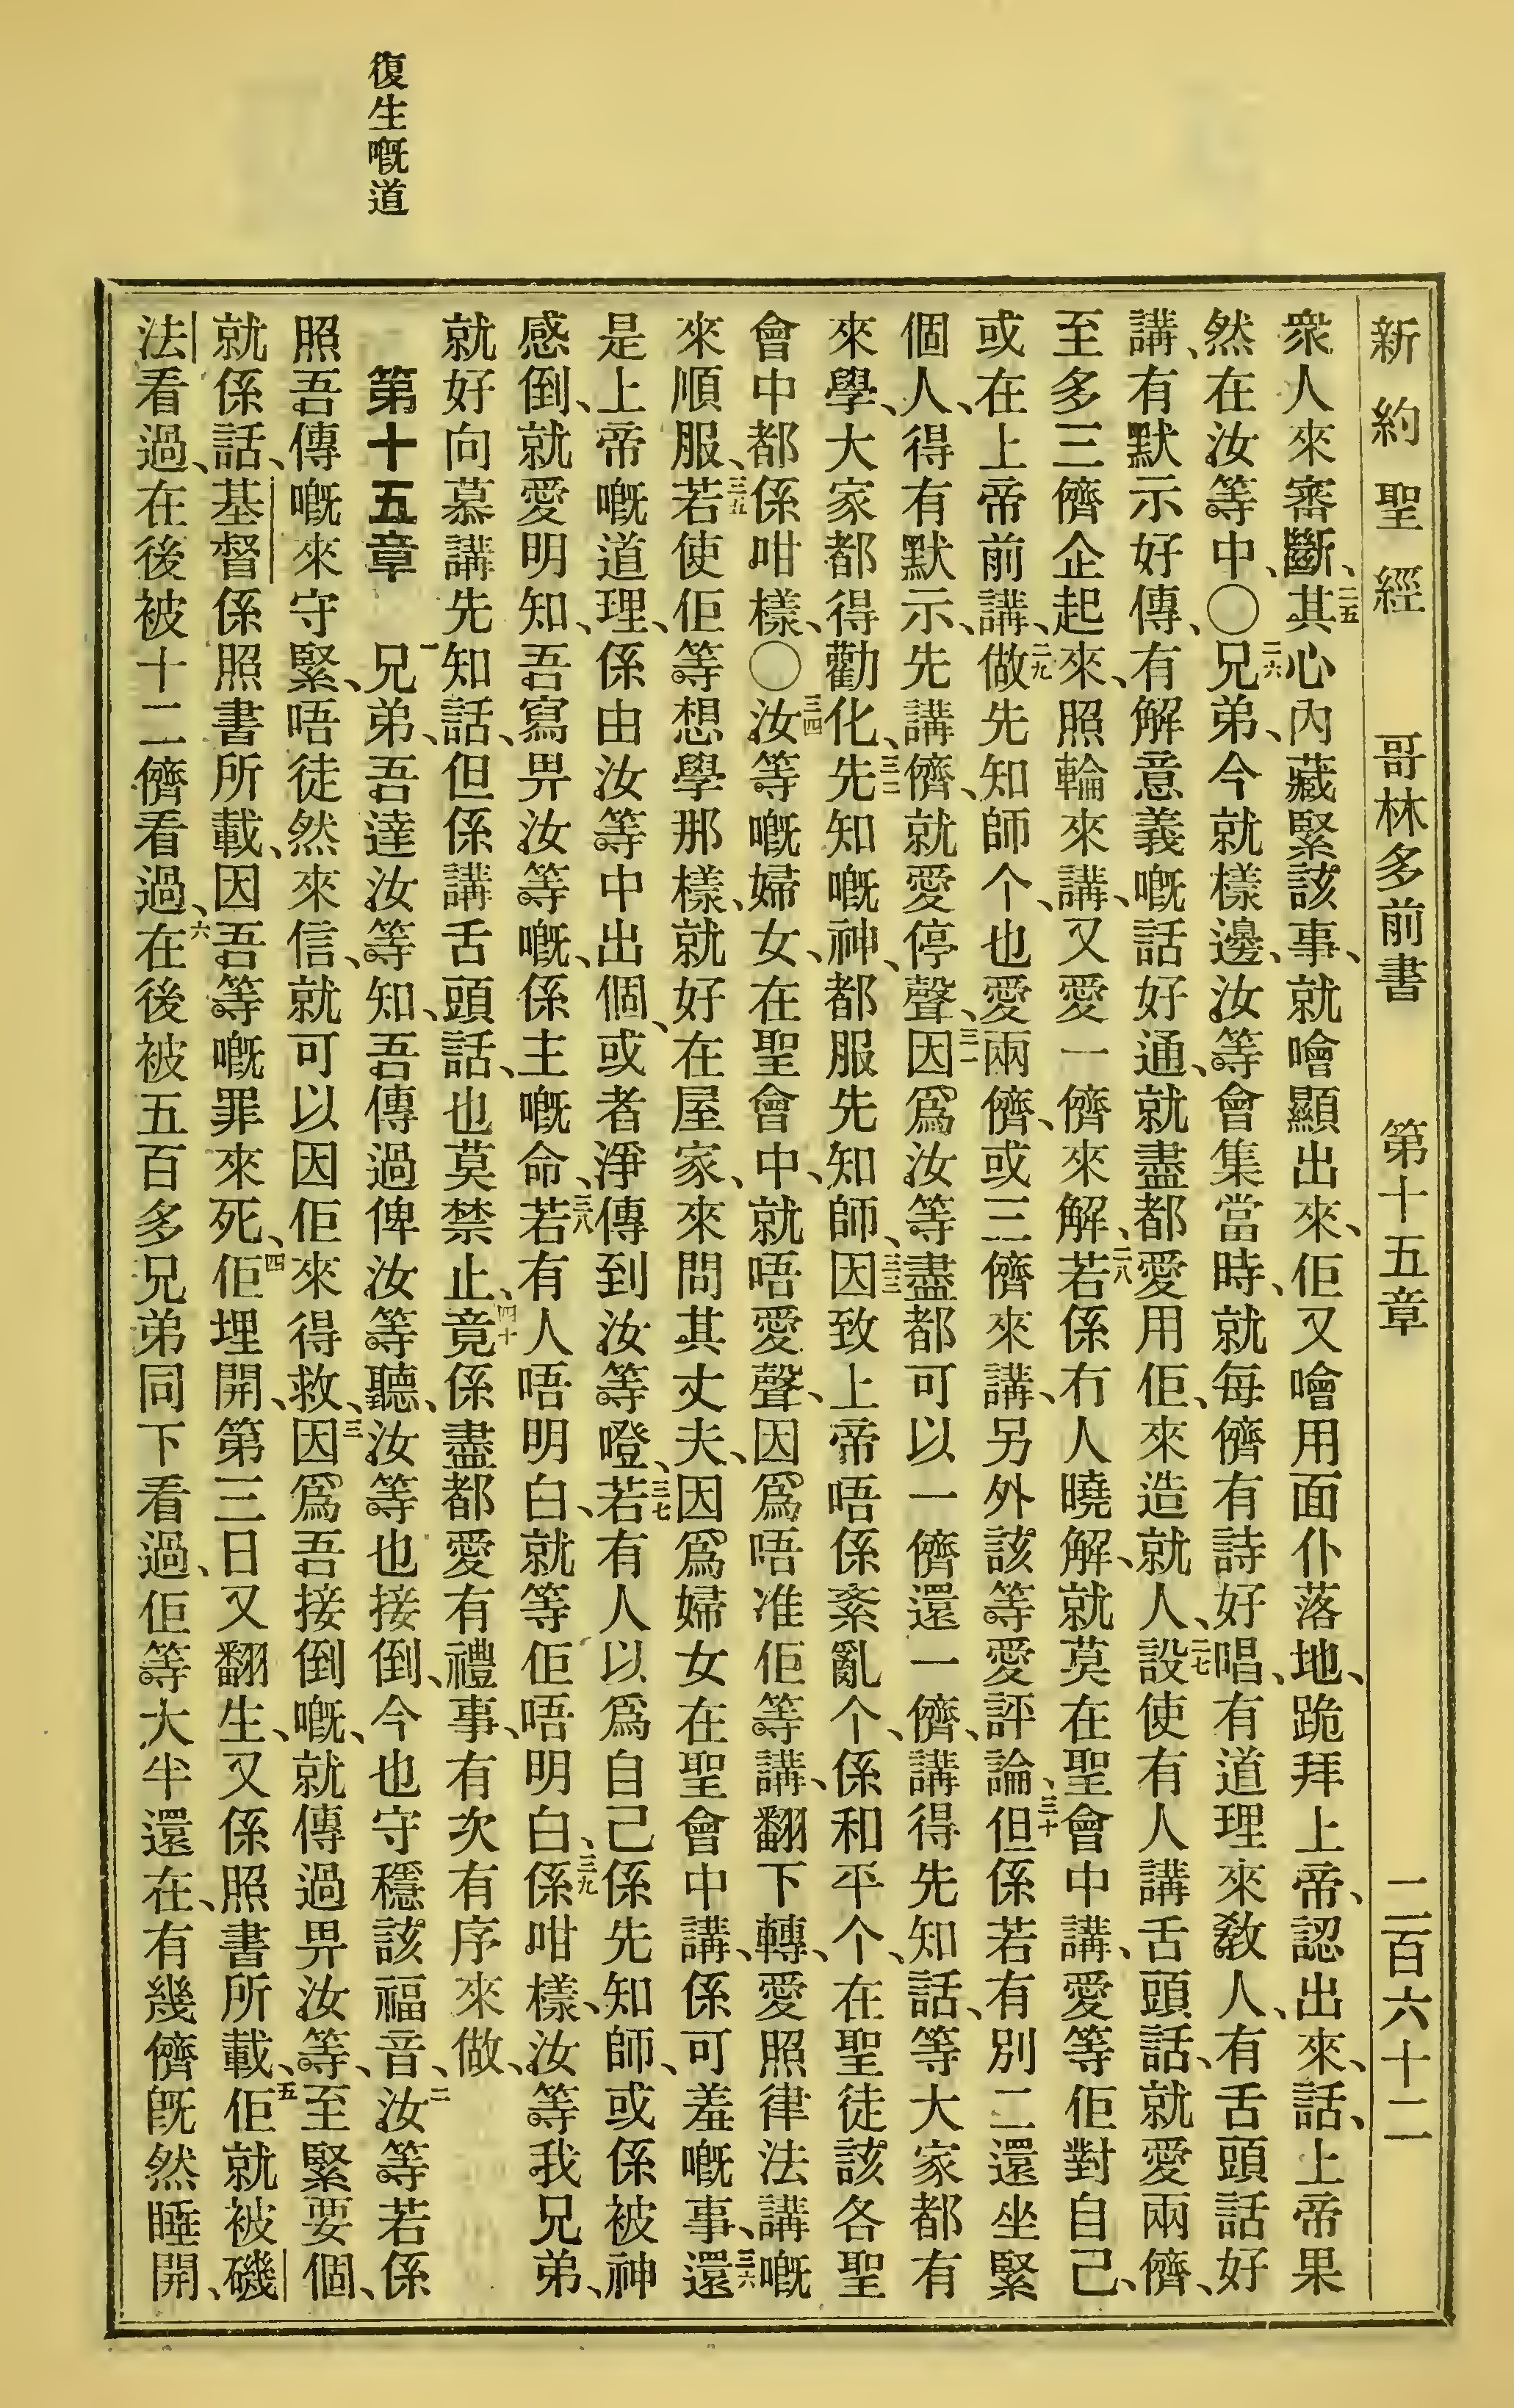 新約聖經 哥林多前書 第十五章 二百六十二
衆人來審斷、二五其心內藏緊該事、就噲顯出來、佢又噲用面仆落地、跪拜上帝、認出來、話、上帝果
然在汝等中、〇二六兄弟、今就樣邊、汝等會集當時、就每儕有詩好唱、有道理來教人、有舌頭話好
講、有默示好傳、有解意義嘅話好通、就盡都愛用佢、來造就人、二七設使有人講舌頭話、就愛兩儕、
至多三儕企起來、照輪來講、又愛一儕來解、二八若係冇人曉解、就莫在聖會中講、愛等佢對自己、
或在上帝前講、二九做先知師个、也愛兩儕、或三儕來講、另外該等愛評論、三十但係若有別二還坐緊
個人、得有默示、先講儕、就愛停聲、三一因爲汝等盡都可以一儕還一儕、講得先知話、等大家都有
來學、大家都得勸化、三二先知嘅神、都服先知師、三三因致上帝唔係紊亂个、係和平个、在聖徒該各聖
會中都係咁樣、〇三四汝等嘅婦女、在聖會中、就唔愛聲、因爲唔准佢等講、翻下轉、愛照律法講嘅
來順服、三五若使佢等想學那樣、就好在屋家、來問其丈夫、因爲婦女在聖會中講、係可羞嘅事、三六還
是上帝嘅道理、係由汝等中出個、或者淨傳到汝等噔、三七若有人以爲自己係先知師、或係被神
感倒、就愛明知、吾寫畀汝等嘅、係主嘅命、三八若有人唔明白、就等佢唔明白、三九係咁樣、汝等我兄弟、
就好向慕講先知話、但係講舌頭話、也莫禁止、四十竟係盡都愛有禮事、有次有序來做、
復生嘅道
第十五章 一兄弟、吾達汝等知、吾傳過俾汝等聽、汝等也接倒、今也守穩該福音、二汝等若係
照吾傳嘅來守緊、唔徒然來信、就可以因佢來得救、三因爲吾接倒嘅、就傳過畀汝等、至緊要個、
就係話、基督係照書所載、因吾等嘅罪來死、四佢埋開、第三日又翻生、又係照書所載、五佢就被磯
法看過、在後被十二儕看過、六在後被五百多兄弟同下看過、佢等大半還在、有幾儕旣然睡開、